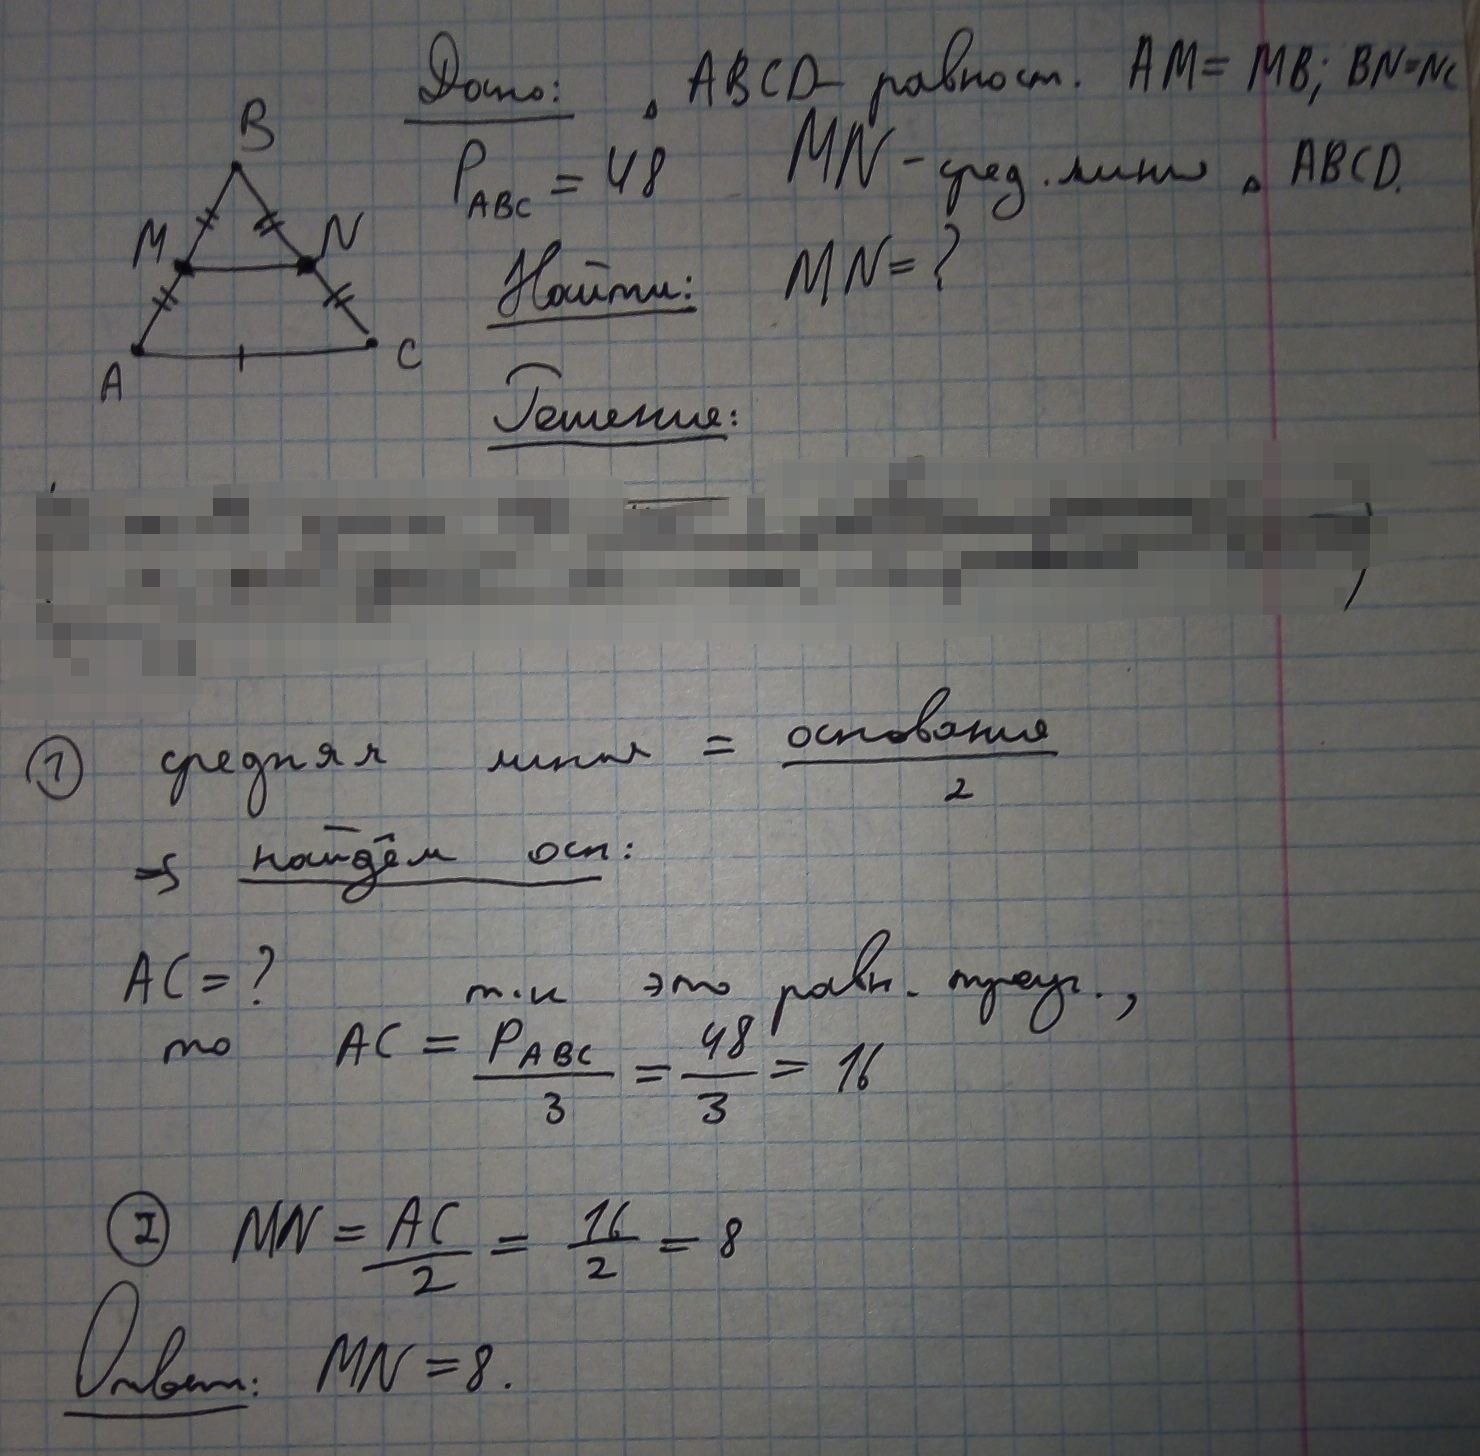 Дано: ▵ ABCD - равност. AM = MB; BN=NC
P ABC = 48 MN - сред. линия ▵ ABCD.
Найти: MN = ?
B
M N
A C
Решение:
① средняя линия = основания / 2
⇒ найдём осн:
AC = ? т.к это равн. треуг.,
то AC = P ABC / 3 = 48 / 3 = 16
② MN = AC / 2 = 16 / 2 = 8
Ответ: MN = 8.